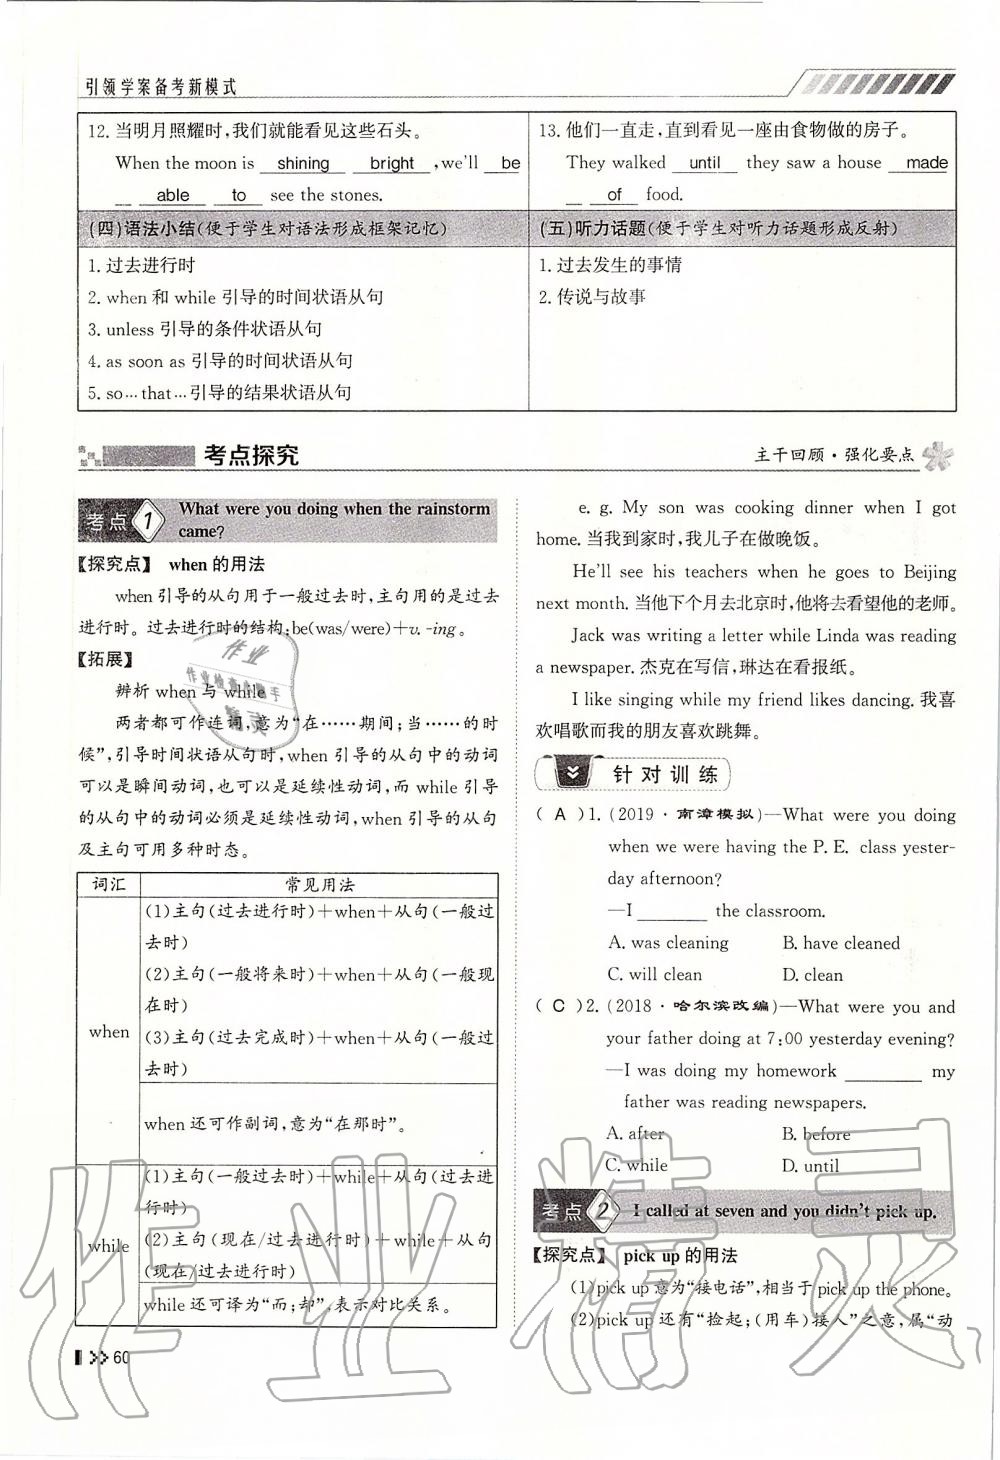 引领学案备考新模式
12. 当明月照耀时,我们就能看见这些石头。
When the moon is shining bright ,we'll be
able to see the stones.
13. 他们一直走,直到看见一座由食物做的房子。
They walked until they saw a house made
of food.
(四)语法小结(便于学生对语法形成框架记忆)
(五)听力话题(便于学生对听力话题形成反射)
1. 过去进行时
2. when 和 while 引导的时间状语从句
3. unless 引导的条件状语从句
4. as soon as 引导的时间状语从句
5. so…that…引导的结果状语从句
1. 过去发生的事情
2. 传说与故事
考点探究
主干回顾·强化要点
考点 1 What were you doing when the rainstorm
came?
【探究点】 when 的用法
when 引导的从句用于一般过去时,主句用的是过去
进行时。过去进行时的结构:be(was/were)+v. -ing。
【拓展】
辨析 when 与 while
两者都可作连词,意为“在……期间;当……的时
候”,引导时间状语从句时,when 引导的从句中的动词
可以是瞬间动词,也可以是延续性动词,而 while 引导
的从句中的动词必须是延续性动词,when 引导的从句
及主句可用多种时态。
词汇 常见用法
when
(1)主句(过去进行时)+when+从句(一般过
去时)
(2)主句(一般将来时)+when+从句(一般现
在时)
(3)主句(过去完成时)+when+从句(一般过
去时)
when 还可作副词,意为“在那时”。
while
(1)主句(一般过去时)+while+从句(过去进
行时)
(2)主句(现在/过去进行时)+while+从句
(现在/过去进行时)
while 还可译为“而;却”,表示对比关系。
60
e. g. My son was cooking dinner when I got
home. 当我到家时,我儿子在做晚饭。
He'll see his teachers when he goes to Beijing
next month. 当他下个月去北京时,他将去看望他的老师。
Jack was writing a letter while Linda was reading
a newspaper. 杰克在写信,琳达在看报纸。
I like singing while my friend likes dancing. 我喜
欢唱歌而我的朋友喜欢跳舞。
针对训练
( A )1. (2019·南漳模拟)—What were you doing
when we were having the P. E. class yester-
day afternoon?
—I ________ the classroom.
A. was cleaning B. have cleaned
C. will clean D. clean
( C )2. (2018·哈尔滨改编)—What were you and
your father doing at 7:00 yesterday evening?
—I was doing my homework ________ my
father was reading newspapers.
A. after B. before
C. while D. until
考点 2 I called at seven and you didn't pick up.
【探究点】 pick up 的用法
(1)pick up 意为“接电话”,相当于 pick up the phone。
(2)pick up 还有“捡起;(用车)接人”之意,属“动
作业精灵
作业
作业检查小助手
精灵